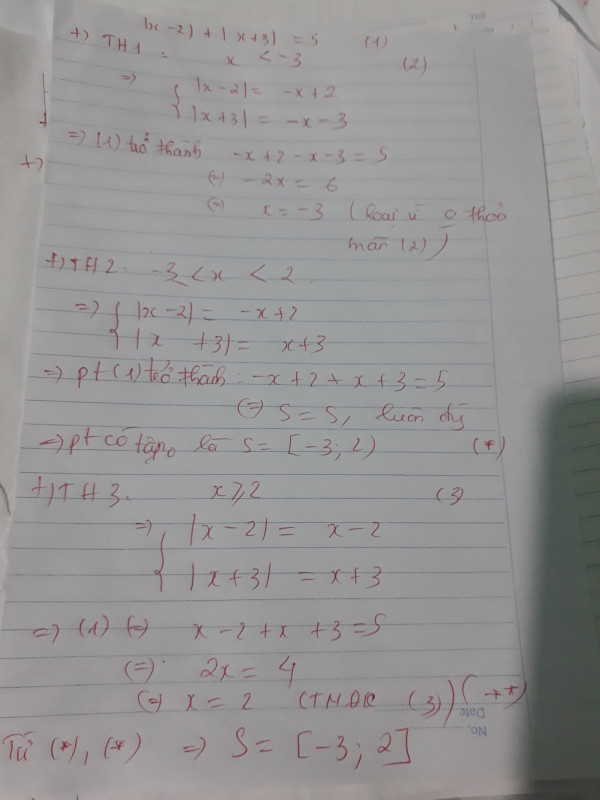 |x-2| + |x+3| = 5 (1)
+) TH1: x < -3 (2)
=> { |x-2| = -x+2
|x+3| = -x-3
=> (1) trở thành -x+2-x-3=5
+)
(=) -2x = 6
(=) x = -3 (loại vì 0 thoả
mãn (2))
+) TH2: -3 ≤ x < 2
=> { |x-2| = -x+2
|x +3| = x+3
=> pt (1) trở thành: -x+2+x+3=5
(=) 5 = 5, luôn đý
=> pt có tập₀ là S = [-3; 2) (*)
+) TH3. x ⩾ 2 (3)
=> { |x-2| = x-2
|x+3| = x+3
=> (1) (=) x-2+x+3=5
(=) 2x = 4
(=) x = 2 (TMĐK (3)) (**)
Date
No.
Từ (*), (*) => S = [-3; 2]